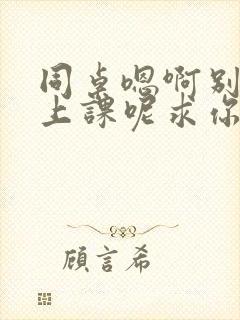 同桌嗯啊别
上課呢求你
顧言希